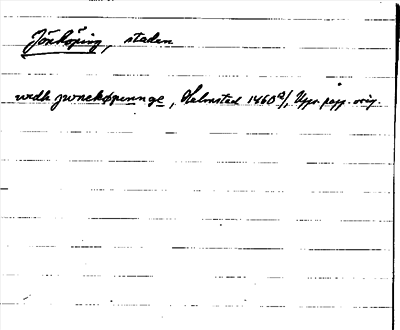 Jönköping, staden
wedh jwnekøpunge, Halmstad 1460 2/1, Upps papp. orig.